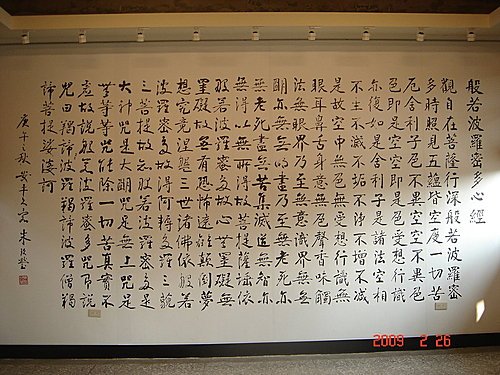 般若波羅密多心經
觀自在菩薩行深般若波羅密
多時照見五蘊皆空度一切苦
厄舍利子色不異空空不異色
色即是空空即是色受想行識
亦復如是舍利子是諸法空相
不生不滅不垢不淨不增不減
是故空中無色無受想行識無
眼耳鼻舌身意無色聲香味觸
法無眼界乃至無意識界無無
明亦無無明盡乃至無老死亦
無老死盡無苦集滅道無智亦
無得以無所得故菩提薩埵依
般若波羅密多故心無罣礙無
罣礙故無有恐怖遠離顛倒夢
想究竟涅槃三世諸佛依般若
波羅密多故得阿耨多羅三藐
三菩提故知般若波羅密多是
大神咒是大明咒是無上咒是
無等等咒能除一切苦真實不
虛故說般若波羅密多咒即說
咒曰揭諦揭諦波羅揭諦波羅僧揭
諦菩提娑婆訶
庚午之秋
2009 2 26